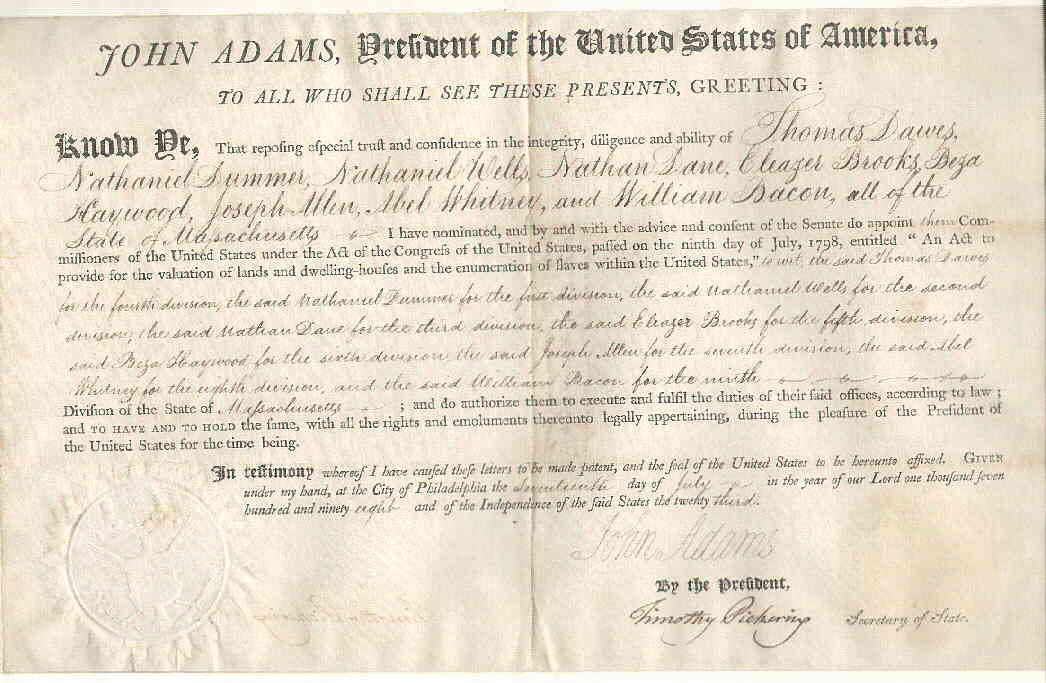 JOHN ADAMS, Preſident of the United States of America,
TO ALL WHO SHALL SEE THESE PRESENTS, GREETING :
Know Ye, That repoſing eſpecial truſt and confidence in the integrity, diligence and ability of Thomas Dawes,
Nathaniel Dummer, Nathaniel Wells, Nathan Dane, Eleazer Brooks, Beza
Haywood, Joseph Allen, Abel Whitney, and William Bacon, all of the
State of Massachusetts I have nominated, and by and with the advice and conſent of the Senate do appoint them Com-
miſſioners of the United States under the Act of the Congreſs of the United States, paſſed on the ninth day of July, 1798, entitled “ An Act to
provide for the valuation of lands and dwelling-houſes and the enumeration of ſlaves within the United States,” to wit, the said Thomas Dawes
for the fourth division, the said Nathaniel Dummer for the first division, the said Nathaniel Wells for the second
division, the said Nathan Dane for the third division, the said Eleazer Brooks for the fifth division, the
said Beza Haywood for the sixth division, the said Joseph Allen for the seventh division, the said Abel
Whitney for the eighth division, and the said William Bacon for the ninth
Diviſion of the State of Massachusetts ; and do authorize them to execute and fulfil the duties of their ſaid offices, according to law ;
and TO HAVE AND TO HOLD the ſame, with all the rights and emoluments thereunto legally appertaining, during the pleaſure of the Preſident of
the United States for the time being.
In teſtimony whereof I have cauſed theſe letters to be made patent, and the ſeal of the United States to be hereunto affixed. GIVEN
under my hand, at the City of Philadelphia the Seventeenth day of July in the year of our Lord one thouſand ſeven
hundred and ninety eight and of the Independence of the ſaid States the twenty third.
John Adams
By the Preſident,
Timothy Pickering Secretary of State.